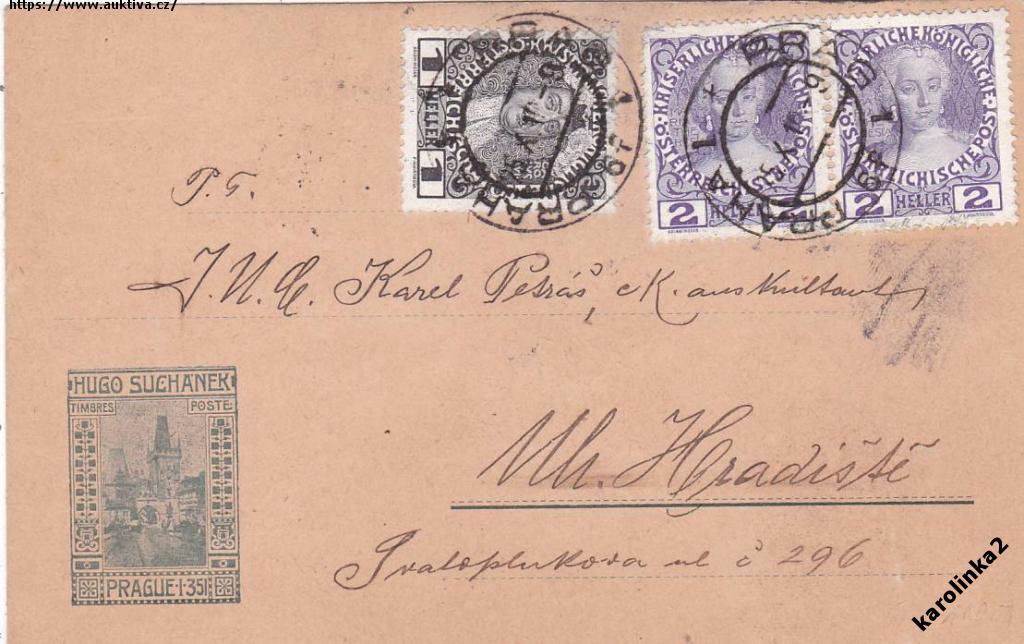 https://www.auktiva.cz/
1 HELLER 1
KAISERLICHE KÖNIGLICHE ÖSTERREICHISCHE POST
2 HELLER 2
2 HELLER 2
PRAHA 1 PRAG 1
PRAHA 1 PRAG 1
P. T.
J. U. C. Karel Petráš, c. k. auskultant
HUGO SUCHÁNEK
TIMBRES POSTE
Uh. Hradiště
Svatoplukova ul č 296
PRAGUE-I-351
karolinka2